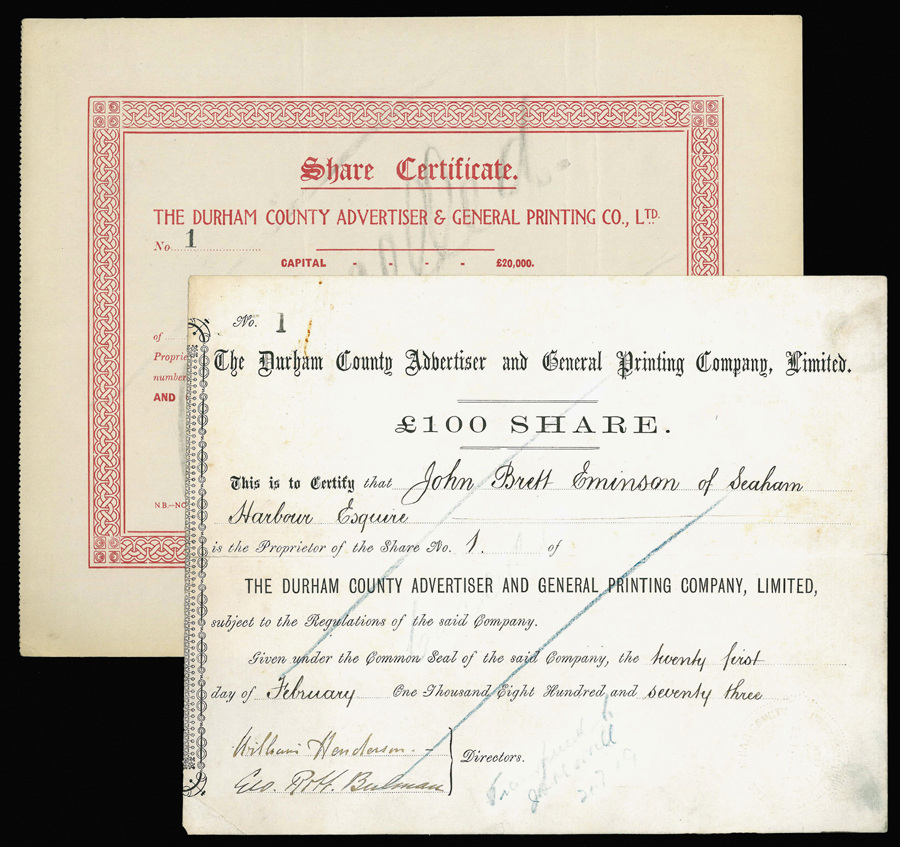 Share Certificate.
THE DURHAM COUNTY ADVERTISER & GENERAL PRINTING CO., LTD.
No 1
CAPITAL - - - - £20,000.
of
Proprie
number
AND
N.B.—NO
No. 1
The Durham County Advertiser and General Printing Company, Limited.
£100 SHARE.
This is to Certify that John Brett Eminson of Seaham
Harbour Esquire
is the Proprietor of the Share No. 1. of
THE DURHAM COUNTY ADVERTISER AND GENERAL PRINTING COMPANY, LIMITED,
subject to the Regulations of the said Company.
Given under the Common Seal of the said Company, the twenty first
day of February One Thousand Eight Hundred and seventy three
William Henderson.
Geo. Robt. Bulman
Directors.